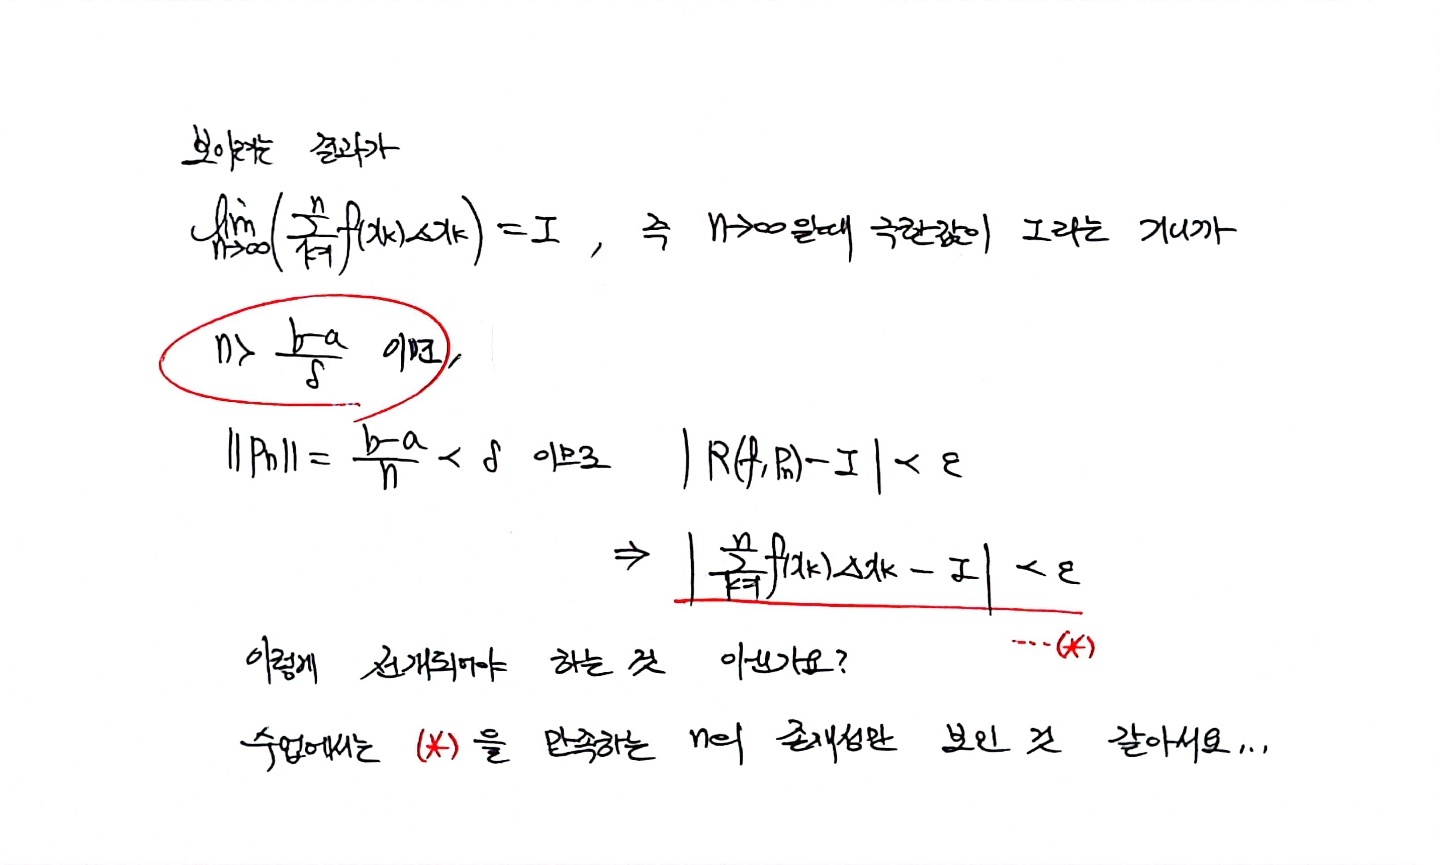 보이려는 결과가
lim n→∞ (∑ k=1 n f(xk)Δxk) = I , 즉 n→∞일때 극한값이 I라는 거니까
n > (b-a)/δ 이면,
||Pn|| = (b-a)/n < δ 이므로 |R(f,Pn)-I| < ε
⇒ |∑ k=1 n f(xk)Δxk - I| < ε
····(*)
이렇게 전개되어야 하는 것 아닌가요?
수업에서는 (*)을 만족하는 n의 존재성만 보인 것 같아서요...